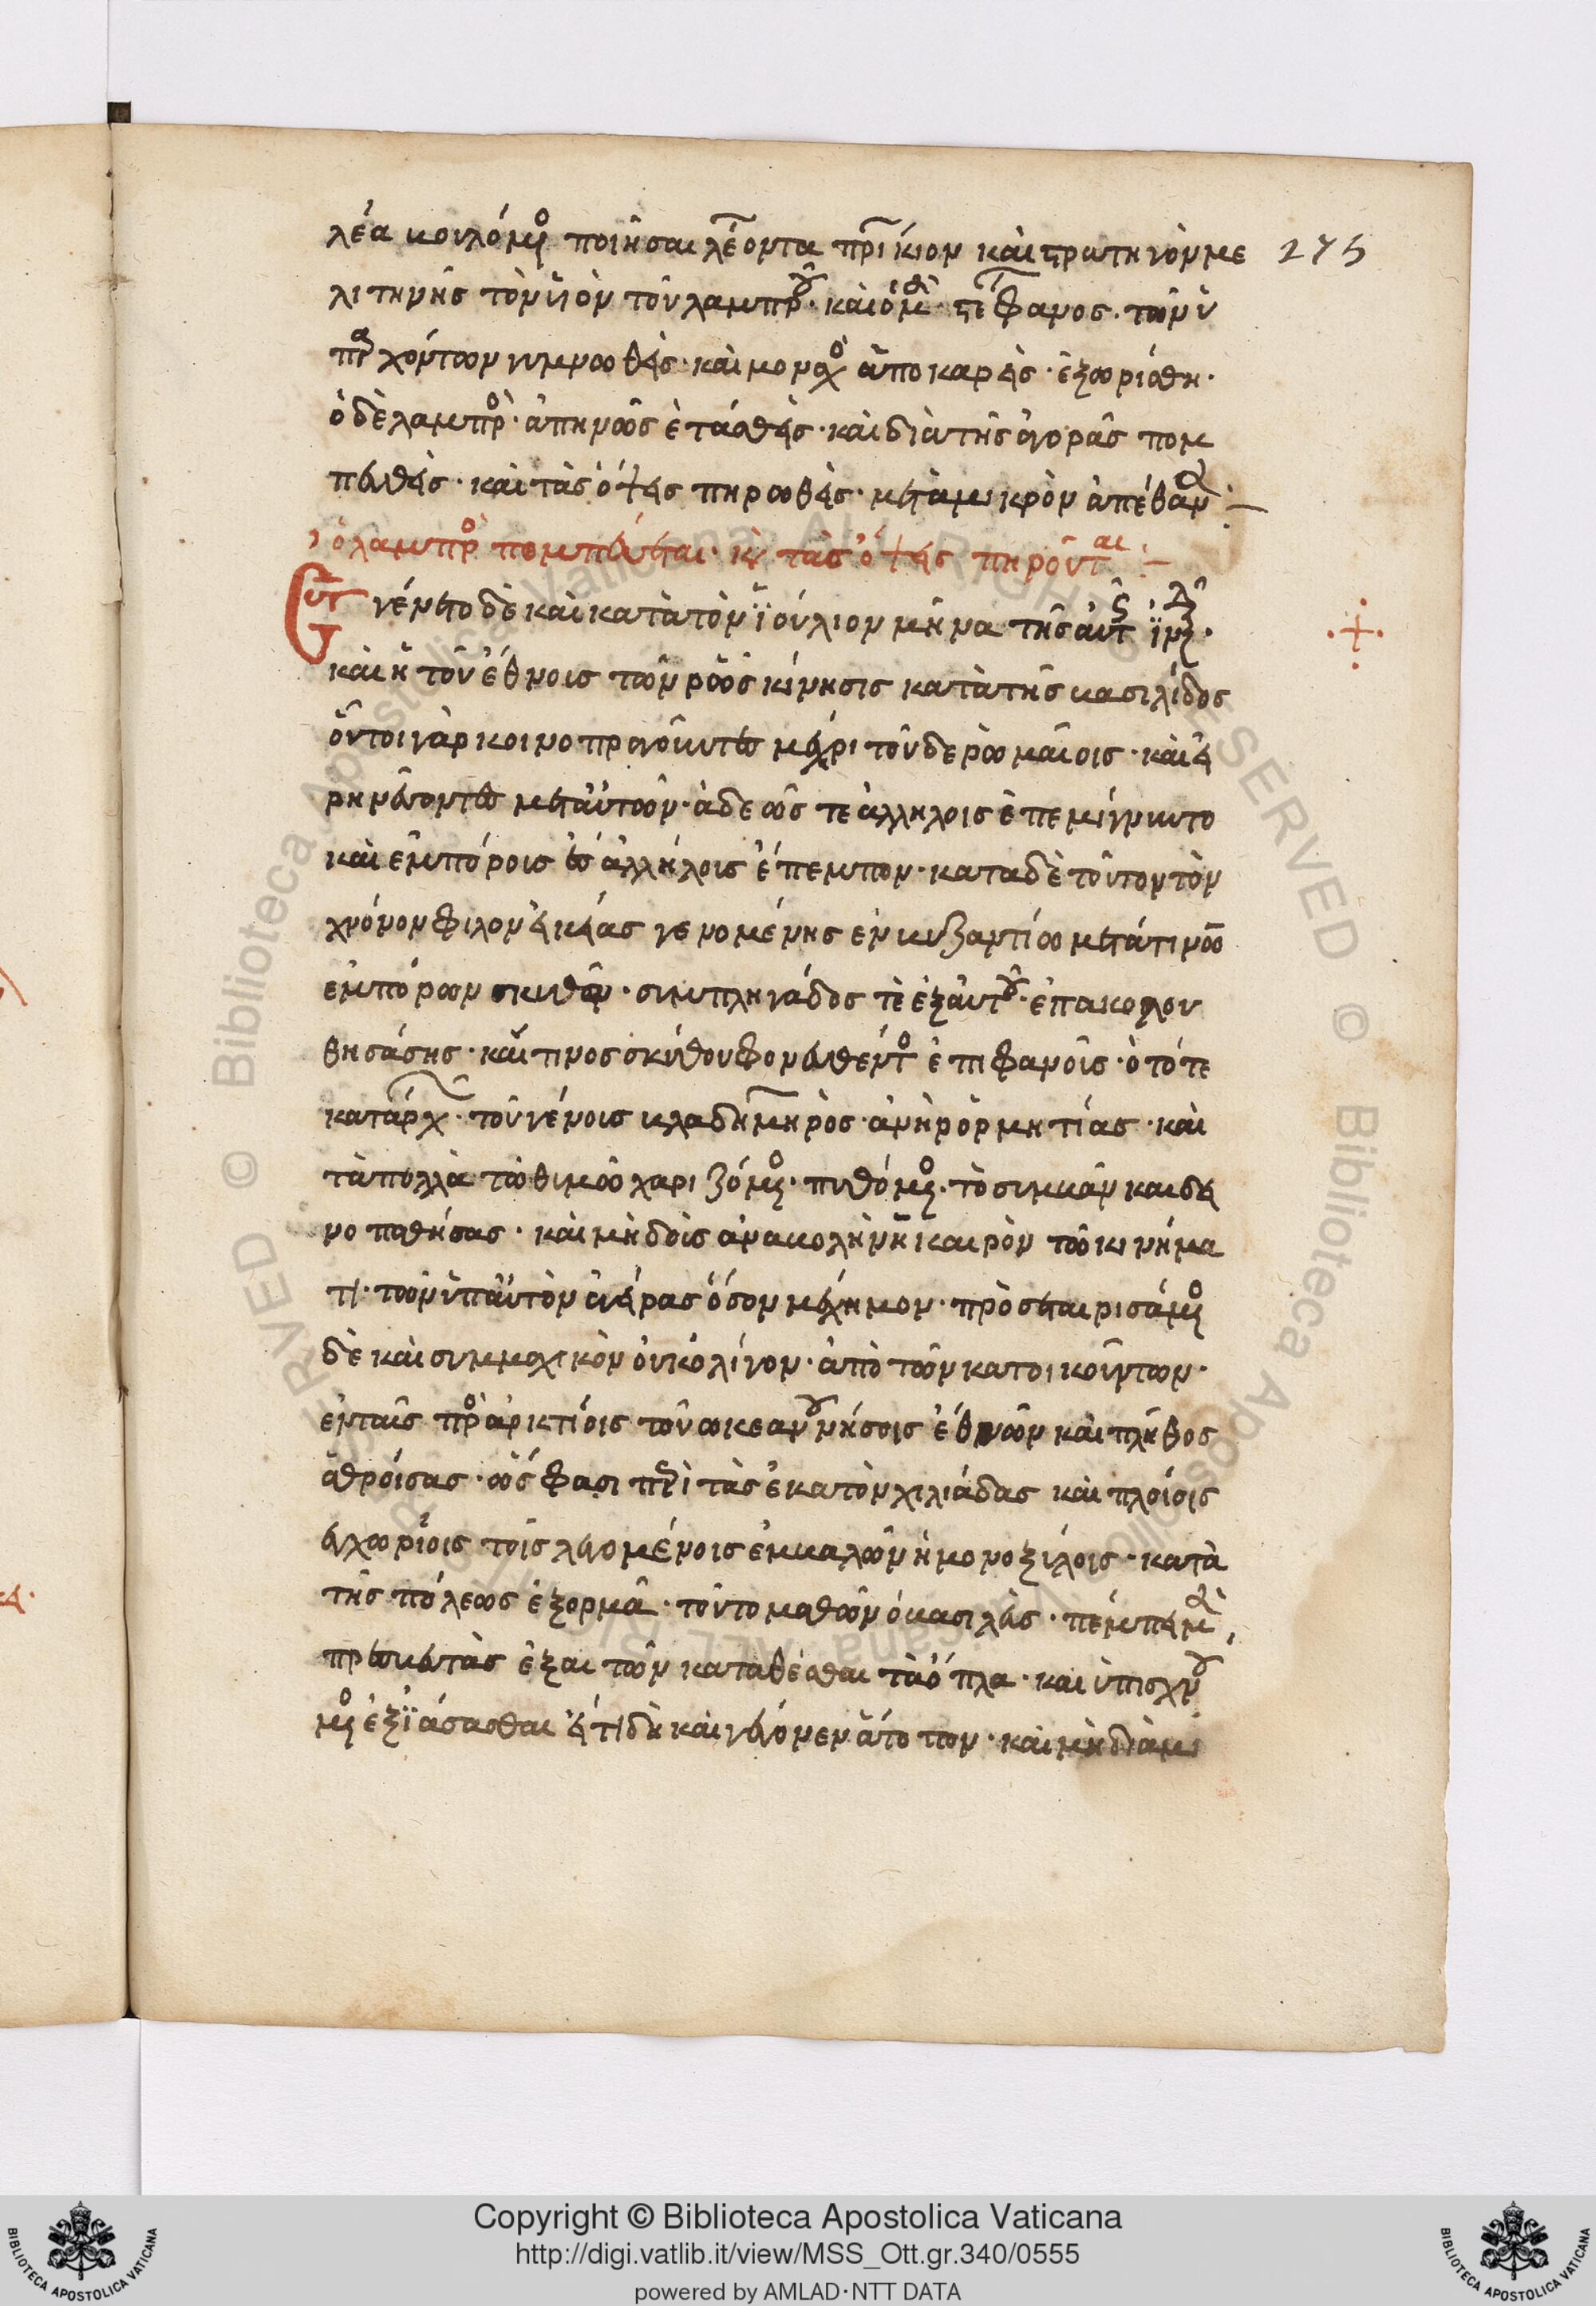 λέα βουλόμενος ποιῆσαι λέοντα πρίκιον καὶ στρατηγὸν με 275
λιτηνῆς τὸν υἱὸν τοῦ λαμπροῦ· καὶ ὁ μὲν στέφανος· τῶν ὑ
παρχόντων γυμνωθείς· καὶ μοναχὸς ἀποκαρείς· ἐξωρίσθη·
ὁ δὲ λαμπρὸς· ἀπηνῶς ἐτάσθεις· καὶ διὰ τῆς ἀγορᾶς πομ
πευθείς· καὶ τὰς ὄψεις πηρωθείς· μετὰ μικρὸν ἀπέθαν
ὁ λαμπρὸς πομπεύεται· κ τὰς ὄψεις πηροῦται
Εγένετο δὲ καὶ κατὰ τὸν ϊούλιον μῆνα τῆς αὐτῆς ϊνδ·
καὶ ἡ τοῦ ἔθνους τῶν ρῶς κίνησις κατὰ τῆς βασιλίδος
οὗτοι γὰρ κοινοπραγοῦντες μέχρι τοῦδε ρωμαίοις· καὶ εἰ
ρηνεύοντες μετ αὐτῶν· ἀδεῶς τε ἀλλήλοις ἐπεμίγνυντο
καὶ ἐμπόρους ἐς ἀλλήλους ἔπεμπον· κατα δὲ τοῦτον τὸν
χρόνον φιλονεικείας γενομένης ἐν βυζαντίω μετά τινω
ἐμπόρων σκυθῶν· συμπληγάδος τὲ ἐξ αὐτοῦ· ἐπακολου
θησάσης· καί τινος σκύθου φονευθέντος ἐπιφανοῦς· ὁ τότε
κατάρχων τοῦ γένους βλαδημηρὸς· ἀνὴρ ὁρμητίας· καὶ
τὰ πολλὰ τῶ θυμῶ χαριζόμενος· πυθόμενος· τὸ συμβὰν καὶ δει
νοπαθήσας· καὶ μὴ δοὺς ἀναβολὴν ἢ καιρὸν τῶ κινήμα
τι· τῶν ὑπ αὐτὸν ἀγείρας ὅσον μάχημον· πρὸσεταιρισάμενος
δὲ καὶ συμμαχικὸν οὐκ ὀλίγον· ἀπὸ τῶν κατοικούντων·
ἐν ταῖς προσαρκτίοις τοῦ ωκεανοῦ νήσοις ἐθνῶν καὶ πλῆθος
ἀθροίσας· ὥς φασι περὶ τὰς ἑκατὸν χιλιάδας καὶ πλοίοις
εγχωρίοις τοῖς λεγομένοις ἐμβαλὼν ἡμονοξύλοις· κατὰ
τῆς πόλεως ἐξορμᾶ· τοῦτο μαθὼν ὁ βασιλεὺς· πέμπει μὲν
πρεσβευτὰς ἐξαιτῶν καταθέσθαι τὰ ὅπλα· καὶ ὑπισχνού
μενος ἐξϊάσασθαι εἴ τι δὴ καὶ γέγονεν ἄτοπον· καὶ μὴ διὰ μι